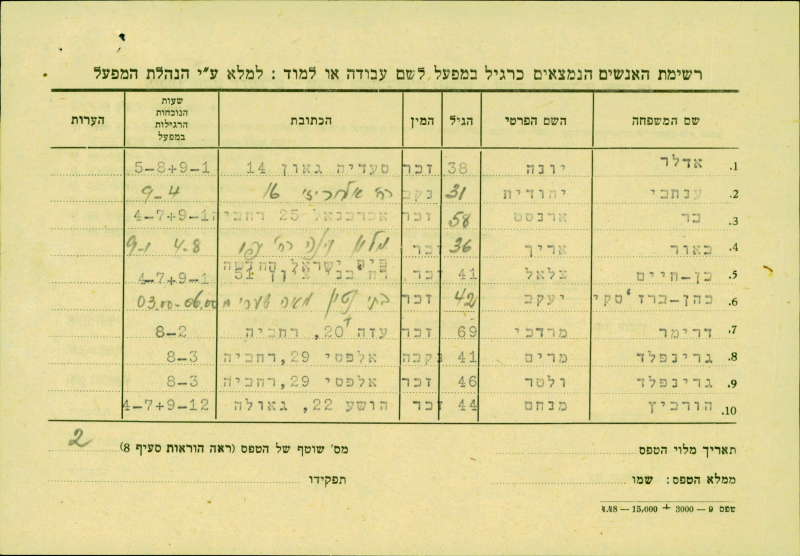 רשימת האנשים הנמצאים כרגיל במפעל לשם עבודה או למוד : למלא ע"י הנהלת המפעל
שם המשפחה השם הפרטי הגיל המין הכתובת שעות הנוכחות הרגילות במפעל הערות
1. אדלר יונה 38 זכר סעדיה גאון 14 5–8+9–1
2. ענתבי יהודית 31 רח' אלחריזי 16 9–4
3. בר ארנסט 58 זכר אברבנאל 25 רחביה 4–7+9–1
4. באור אריך 36 זכר מלון וינה רח' יפו 9–1 4–8
בית ישראל החדשה
5. בן-חיים צלאל 41 זכר רח' בני ציון 51 4–7+9–1
6. כהן-ברז'סקי יעקב 42 זכר בתי נטין מאה שערים 03.00–06.00
7. דרימר מרדכי 69 זכר עזה 20, רחביה 8–2
8. גרינפלד מרים 41 נקבה אלפסי 29, רחביה 8–3
9. גרינפלד ולטר 46 זכר אלפסי 29, רחביה 8–3
10. הורביץ מנחם 44 זכר הושע 22, גאולה 4–7+9–12
תאריך מלוי הטפס מס' שוטף של הטפס (ראה הוראות סעיף 8) 2
ממלא הטפס : שמו תפקידו
טפס 9 — 3000 + 15,000 — 4.48